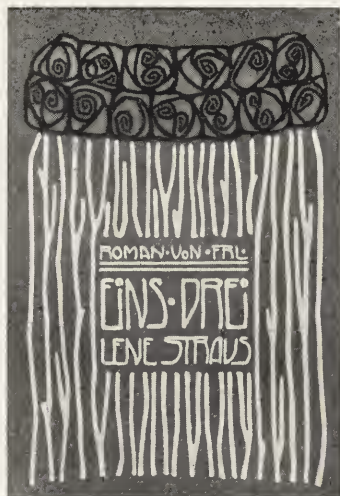 ROMAN·VON·FRL·
EINS·DREI
LENE STRAUS